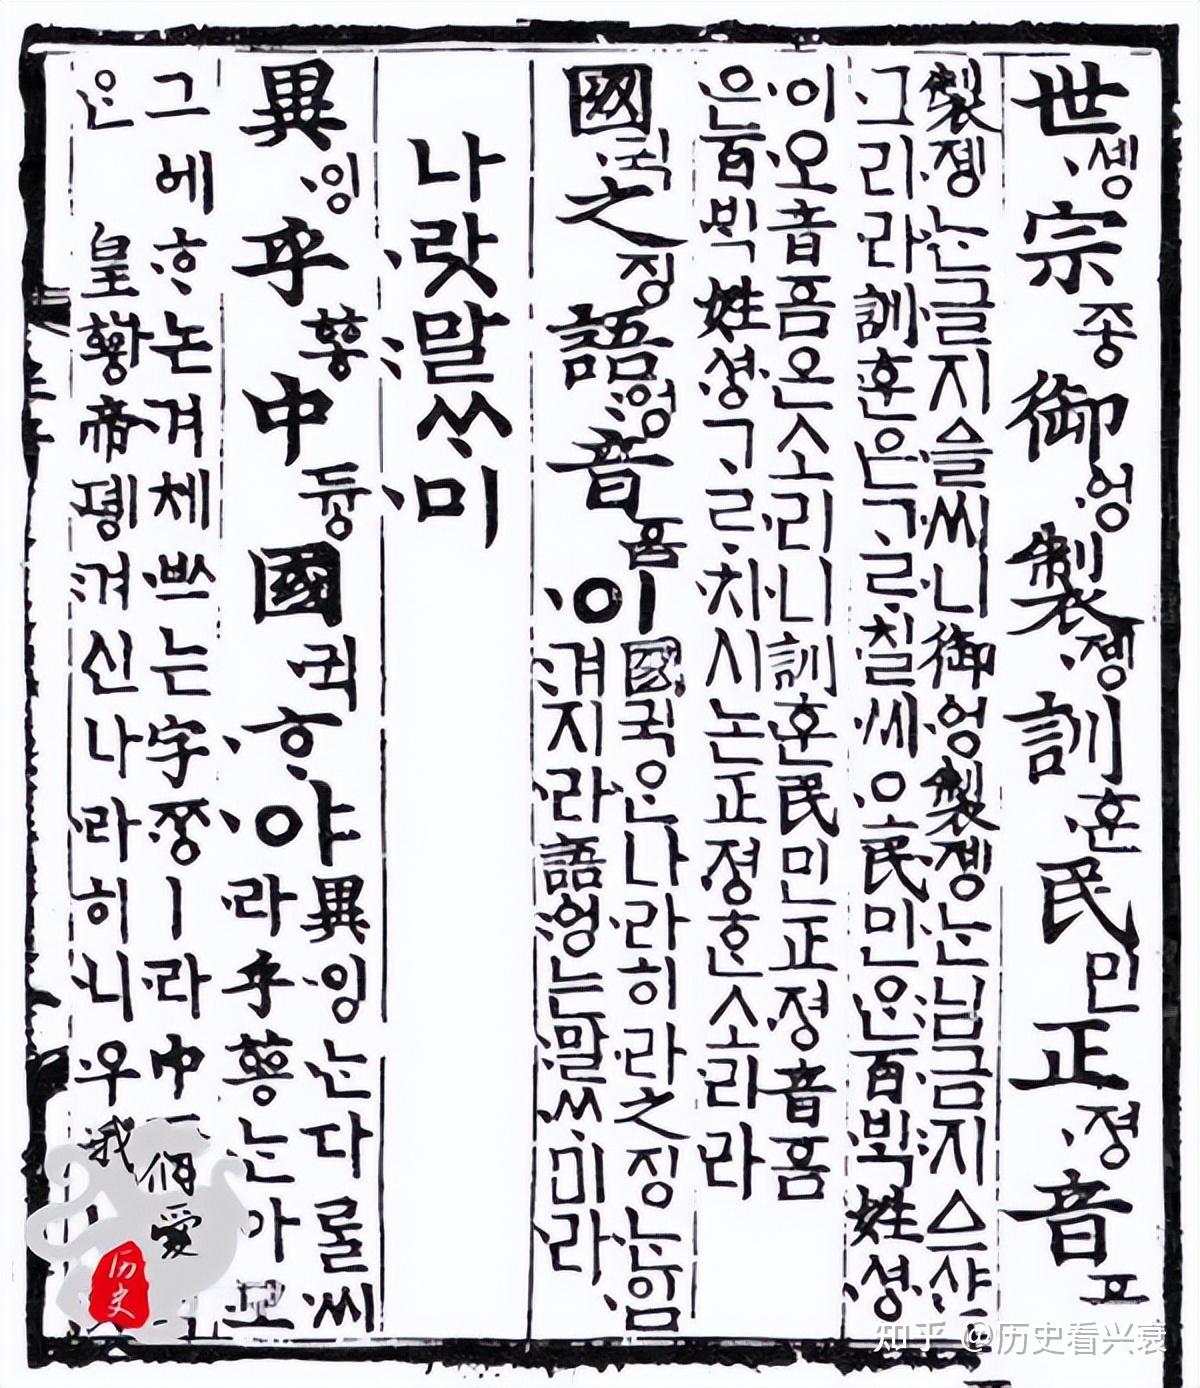 世솅宗종御엉製졩訓훈民민正졍音
製졩ᄂᆞᆫ글지ᅀᅳᆯ씨니御엉製졩ᄂᆞᆫ님금지ᅀᅳ샨
그리라訓훈은ᄀᆞᄅᆞ칠씨오民민ᄋᆞᆫ百ᄇᆡᆨ姓셩
이오音ᅙᅳᆷ은소리니訓훈民민正졍音ᅙᅳᆷ
은百ᄇᆡᆨ姓셩ᄀᆞᄅᆞ치시논正졍ᄒᆞᆫ소리라
國귁之징語ᅌᅥᆼ音ᅙᅳᆷ이
國귁ᄋᆞᆫ나라히라之징ᄂᆞᆫ입
겨지라語ᅌᅥᆼ는말ᄊᆞ미라
나랏말ᄊᆞ미
異잉乎ᅘᅩᆼ中듀ᇰ國귁ᄒᆞ야
異잉ᄂᆞᆫ다ᄅᆞᆯ씨
라乎ᅘᅩᆼᄂᆞᆫ아모
그ᅌᅦᄒᆞ논겨체ᄡᅳ는字ᄍᆞᆼㅣ라中
ᄋᆞᆫ皇황帝뎽겨신나라히니우
我們愛
历史
知乎 @历史看兴衰